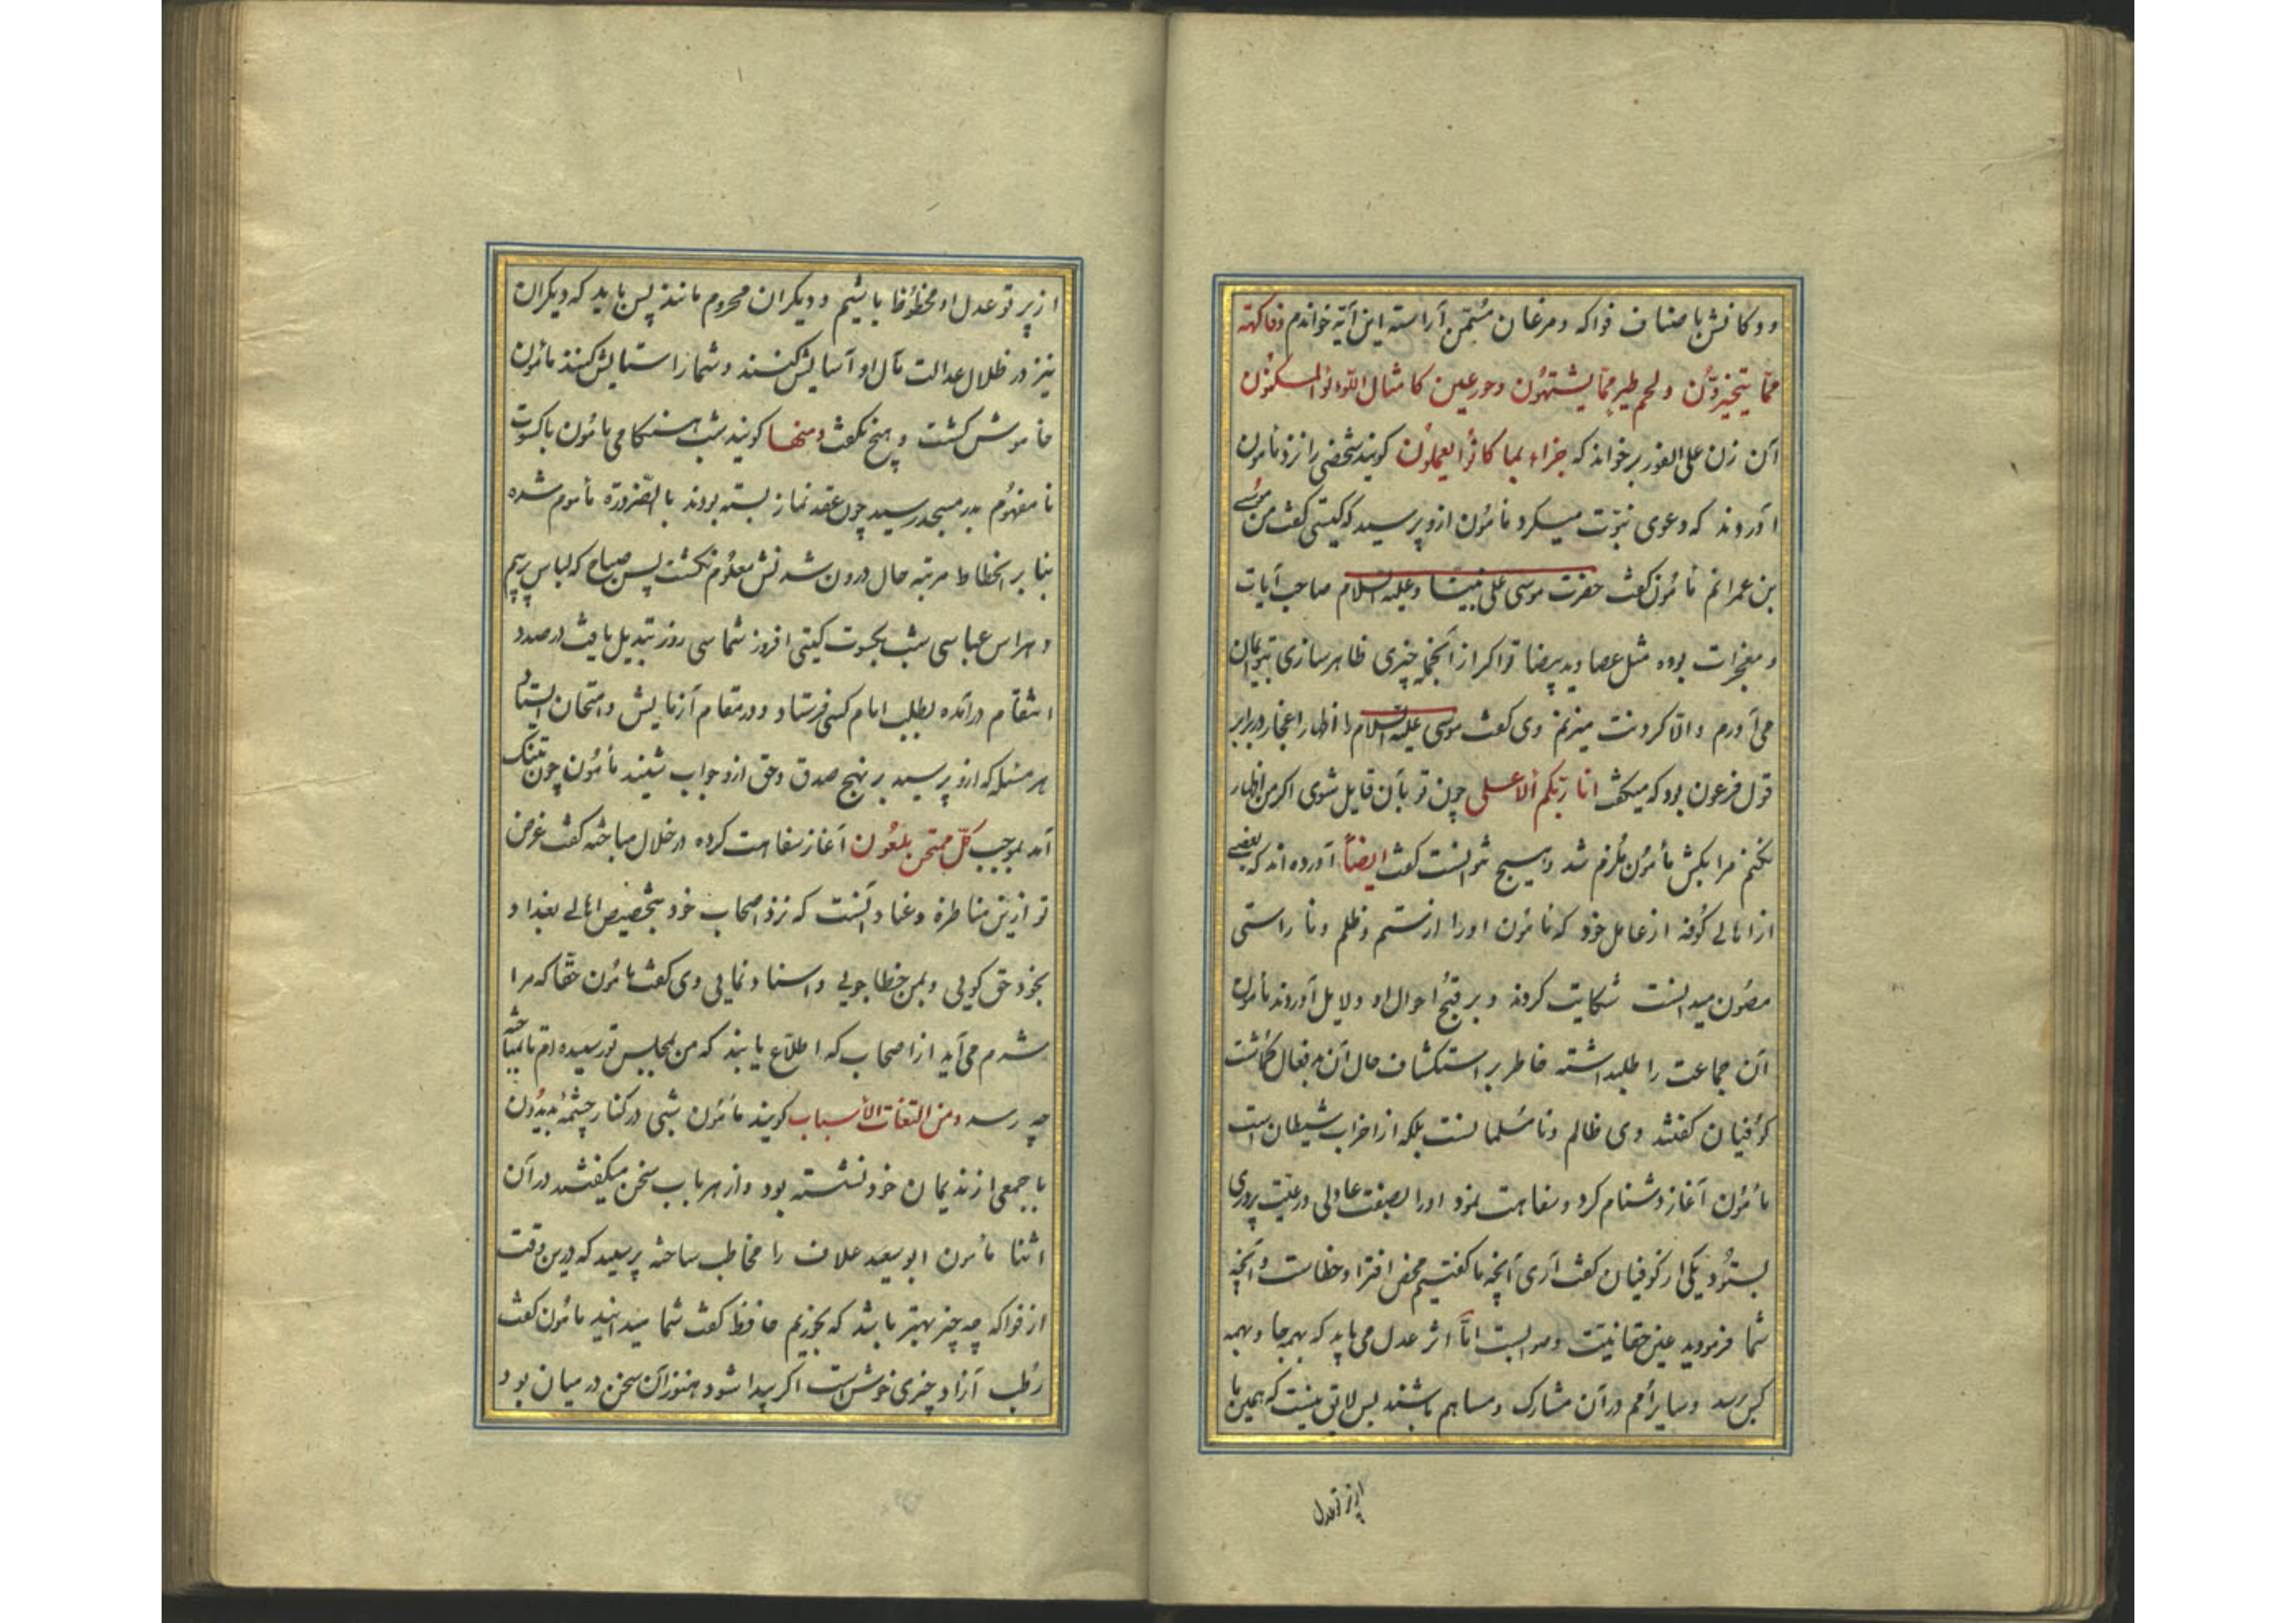 ودکانش باصناف فواکه ومرغان مثمن آراسته این آیه خواندم وفاکهة
ممّا یتخیرون ولحم طیر ممّا یشتهون وحور عین کامثال اللؤلؤ المکنون
آن زن علی الفور برخواند که جزاء بما کانوا یعملون کویند شخصی را نزد مأمون
آوردند که دعوی نبوّت میکرد مأمون ازو پرسید که کیستی کفت من موسی
بن عمرانم مأمون کفت حضرت موسی علی نبینا وعلیه السلام صاحب آیات
ومعجزات بوده مثل عصا وید بیضا تو اکر از آنجمله چیزی ظاهر سازی بتو ایمان
می آورم والّا کردنت میزنم وی کفت موسی علیه السلام را اظهار اعجاز در برابر
قول فرعون بود که میکفت انا ربّکم الاعلی چون تو بآن قایل شوی اکر من اظهار
نکنم مرا بکش مأمون ملزم شد وهیچ نتوانست کفت ایضاً آورده اند که بعضی
از اهالی کوفه از عامل خود که مأمون اورا از ستم وظلم ونا راستی
مصون میدانست شکایت کردند وبر قبح احوال او دلایل آوردند مأمون
آن جماعت را طلبداشته خاطر بر استکشاف حال آن بدفعال کماشت
کوفیان کفتند وی ظالم ونا مسلمانست بلکه از احزاب شیطان است
مأمون آغاز دشنام کرد وسفاهت نمود اورا بصفت عادلی ورعیت پروری
بستود یکی از کوفیان کفت آری آنچه ما کفتیم محض افترا وخطاست وآنچه
شما فرمودید عین حقانیت وصوابست امّا اثر عدل می باید که بهمه جا وبهمه
کس رسد وسایر امم در آن مشارک ومساهم باشند پس لایق نیست که همین ما
از پرتو عدل
از پرتو عدل او محظوظ باشیم ودیکران محروم مانند پس باید که دیکران
نیز در ظلال عدالت مآل او آسایش کنند وشمارا ستایش کنند مأمون
خاموش کشت وهیچ نکفت ومنها کویند شب هنکامی مأمون باکسوت
نا مفهوم بدر مسجد رسید چون عقد نماز بسته بودند بالضرورة مأموم شده
بنا بر انحطاط مرتبه حال درون شدنش معلوم نکشت پس صباح که لباس پر بیم
وهراس عباسی شب بکسوت کیتی افروز شماسی روز تبدیل یافت در صدد
انتقام درآمده بطلب امام کس فرستاد ودر مقام آزمایش وامتحان ایستاد
هر مسئله که ازو پرسید بر نهج صدق وحق ازو جواب شنید مأمون چون بتنک
آمد بموجب کلّ ممتحن ملعون آغاز سفاهت کرده در خلال مباحثه کفت غرض
تو ازین مناظره وعناد آنست که نزد اصحاب خود بتخصیص اهالی بغداد و
بخود حق کویی وبمن خطا جویی واسناد نمایی وی کفت مأمون حقّا که مرا
شرم می آید از اصحاب که اطلاع یابند که من بمجلس تو رسیده ام تا بمباحثه
چه رسد ومن اتّفاقات الأسباب کویند مأمون شبی در کنار چشمهٔ بدیدون
با جمعی از ندیمان خود نشسته بود واز هر باب سخن میکفتند در آن
اثنا مأمون ابو سعید علاف را مخاطب ساخته پرسید که درین وقت
از فواکه چه چیز بهتر باشد که بخوریم حافظ کفت شما میدانید مأمون کفت
رطب آزاد چیزی خوش است اکر پیدا شود هنوز آن سخن در میان بود